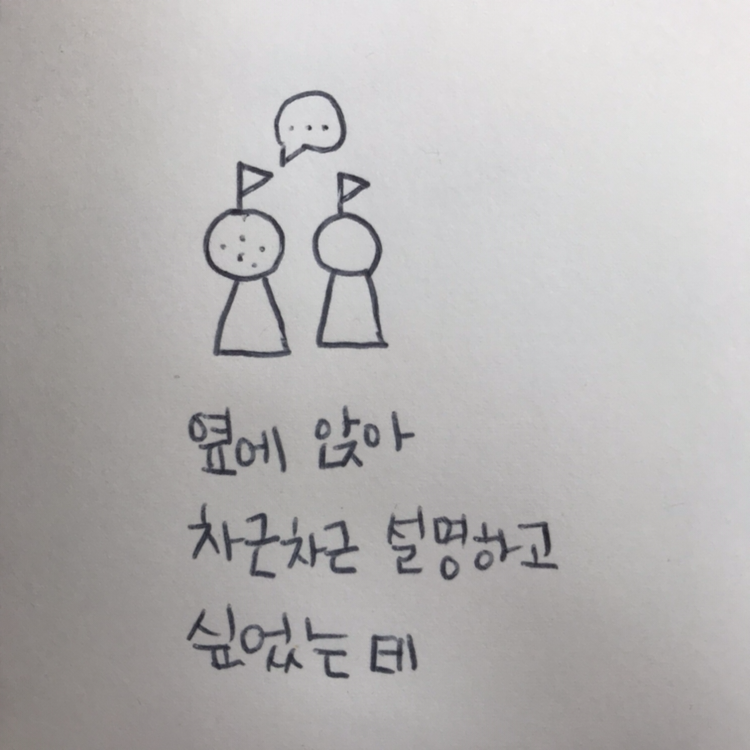 옆에 앉아
차근차근 설명하고
싶었는데